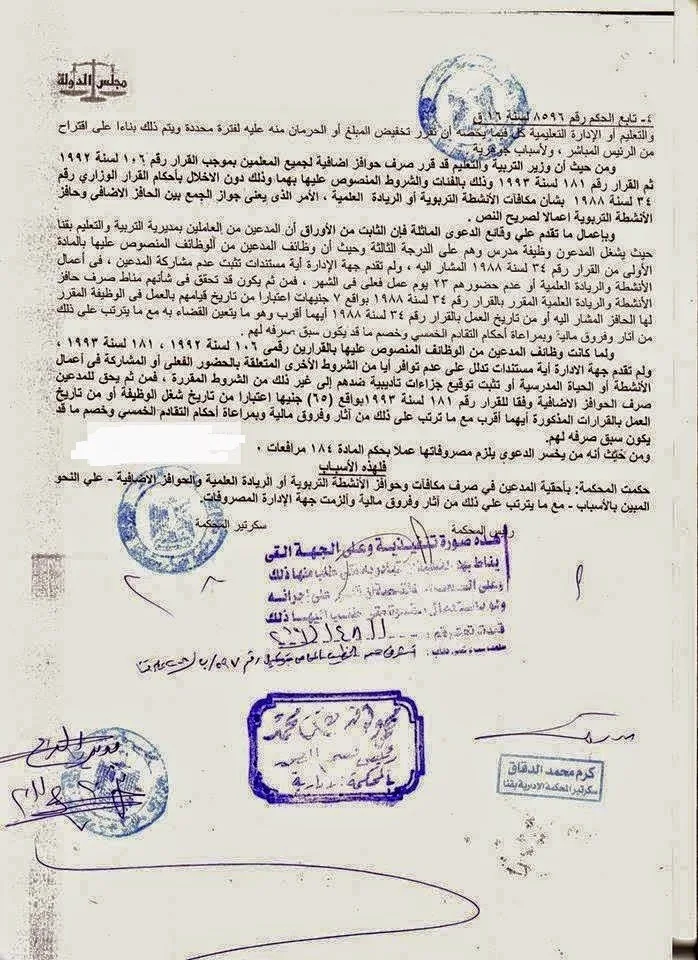 مجلس الدولة
٤- تابع الحكم رقم ٨٥٩٦ لسنة ١٦ ق
والتعليم أو الإدارة التعليمية كل فيما يخصه أن تقرر تخفيض المبلغ أو الحرمان منه عليه لفترة محددة ويتم ذلك بناءا على اقتراح
من الرئيس المباشر ، ولأسباب جوهرية
ومن حيث أن وزير التربية والتعليم قد قرر صرف حوافز اضافية لجميع المعلمين بموجب القرار رقم ١٠٦ لسنة ١٩٩٢
ثم القرار رقم ١٨١ لسنة ١٩٩٣ وذلك بالفئات والشروط المنصوص عليها بهما وذلك دون الاخلال بأحكام القرار الوزاري رقم
٣٤ لسنة ١٩٨٨ بشأن مكافآت الأنشطة التربوية أو الريادة العلمية ، الأمر الذى يعنى جواز الجمع بين الحافز الاضافى وحافز
الأنشطة التربوية اعمالا لصريح النص .
وبإعمال ما تقدم علي وقائع الدعوى الماثلة فإن الثابت من الأوراق أن المدعين من العاملين بمديرية التربية والتعليم بقنا
حيث يشغل المدعون وظيفة مدرس وهم على الدرجة الثالثة وحيث أن وظائف المدعين من الوظائف المنصوص عليها بالمادة
الأولى من القرار رقم ٣٤ لسنة ١٩٨٨ المشار اليه ، ولم تقدم جهة الإدارة أية مستندات تثبت عدم مشاركة المدعين ، في أعمال
الأنشطة والريادة العلمية أو عدم حضورهم ٢٣ يوم عمل فعلى فى الشهر ، فمن ثم يكون قد تحقق فى شأنهم مناط صرف حافز
الأنشطة والريادة العلمية المقرر بالقرار رقم ٣٤ لسنة ١٩٨٨ بواقع ٧ جنيهات اعتبارا من تاريخ قيامهم بالعمل فى الوظيفة المقرر
لها الحافز المشار اليه أو من تاريخ العمل بالقرار رقم ٣٤ لسنة ١٩٨٨ أيهما أقرب وهو ما يتعين القضاء به مع ما يترتب على ذلك
من آثار وفروق مالية وبمراعاة أحكام التقادم الخمسي وخصم ما قد يكون سبق صرفه لهم .
ولما كانت وظائف المدعين من الوظائف المنصوص عليها بالقرارين رقمى ١٠٦ لسنة ١٩٩٢ ، ١٨١ لسنة ١٩٩٣ ،
ولم تقدم جهة الادارة أية مستندات تدلل على عدم توافر أيا من الشروط الأخرى المتعلقة بالحضور الفعلى أو المشاركة فى أعمال
الأنشطة أو الحياة المدرسية أو تثبت توقيع جزاءات تأديبية ضدهم إلى غير ذلك من الشروط المقررة ، فمن ثم يحق للمدعين
صرف الحوافز الاضافية وفقا للقرار رقم ١٨١ لسنة ١٩٩٣ بواقع (٦٥) جنيها اعتبارا من تاريخ شغل الوظيفة أو من تاريخ
العمل بالقرارات المذكورة أيهما أقرب مع ما ترتب على ذلك من آثار وفروق مالية وبمراعاة أحكام التقادم الخمسي وخصم ما قد
يكون سبق صرفه لهم.
ومن حيث أنه من يخسر الدعوى يلزم مصروفاتها عملا بحكم المادة ١٨٤ مرافعات .
فلهذه الأسباب
حكمت المحكمة: بأحقية المدعين في صرف مكافآت وحوافز الأنشطة التربوية أو الريادة العلمية والحوافز الاضافية - علي النحو
المبين بالأسباب - مع ما يترتب علي ذلك من آثار وفروق مالية وألزمت جهة الإدارة المصروفات.
سكرتير المحكمة
رئيس المحكمة
هذه صورة تنفيذية وعلى الجهة التى
كرم محمد الدقاق
سكرتير المحكمة الادارية بقنا